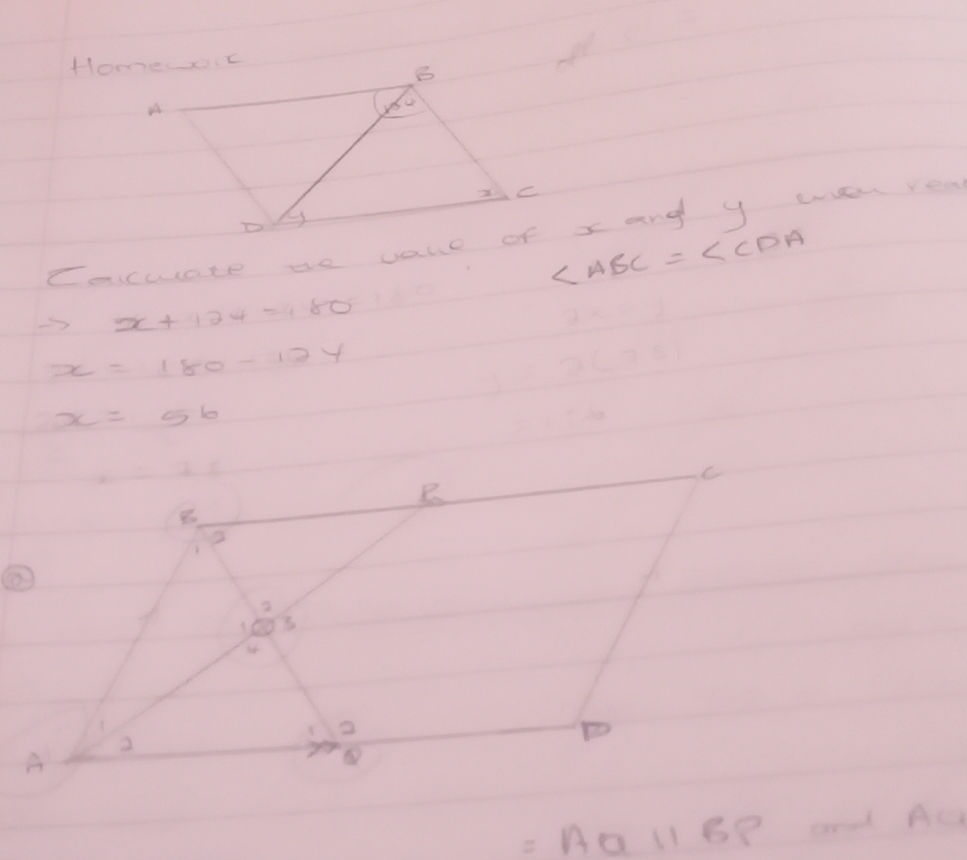 Homework
A B
D y x C
Calculate the value of x and y when
<ABC = <CDA
→ x + 124 = 180
x = 180 - 124
x = 56
B P C
1 2
2
1 O 3
4
1 2 1 2
A Q D
= AQ || BP and